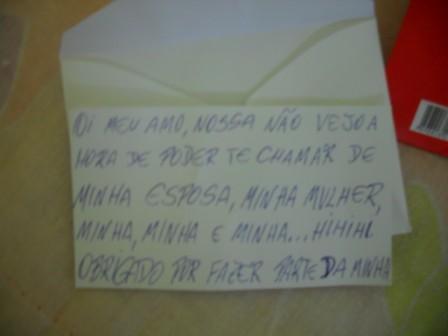 OI MEU AMO, NOSSA NÃO VEJO A
HORA DE PODER TE CHAMAR DE
MINHA ESPOSA, MINHA MULHER,
MINHA, MINHA E MINHA...HIHIHI
OBRIGADO POR FAZER PARTE DA MINHA